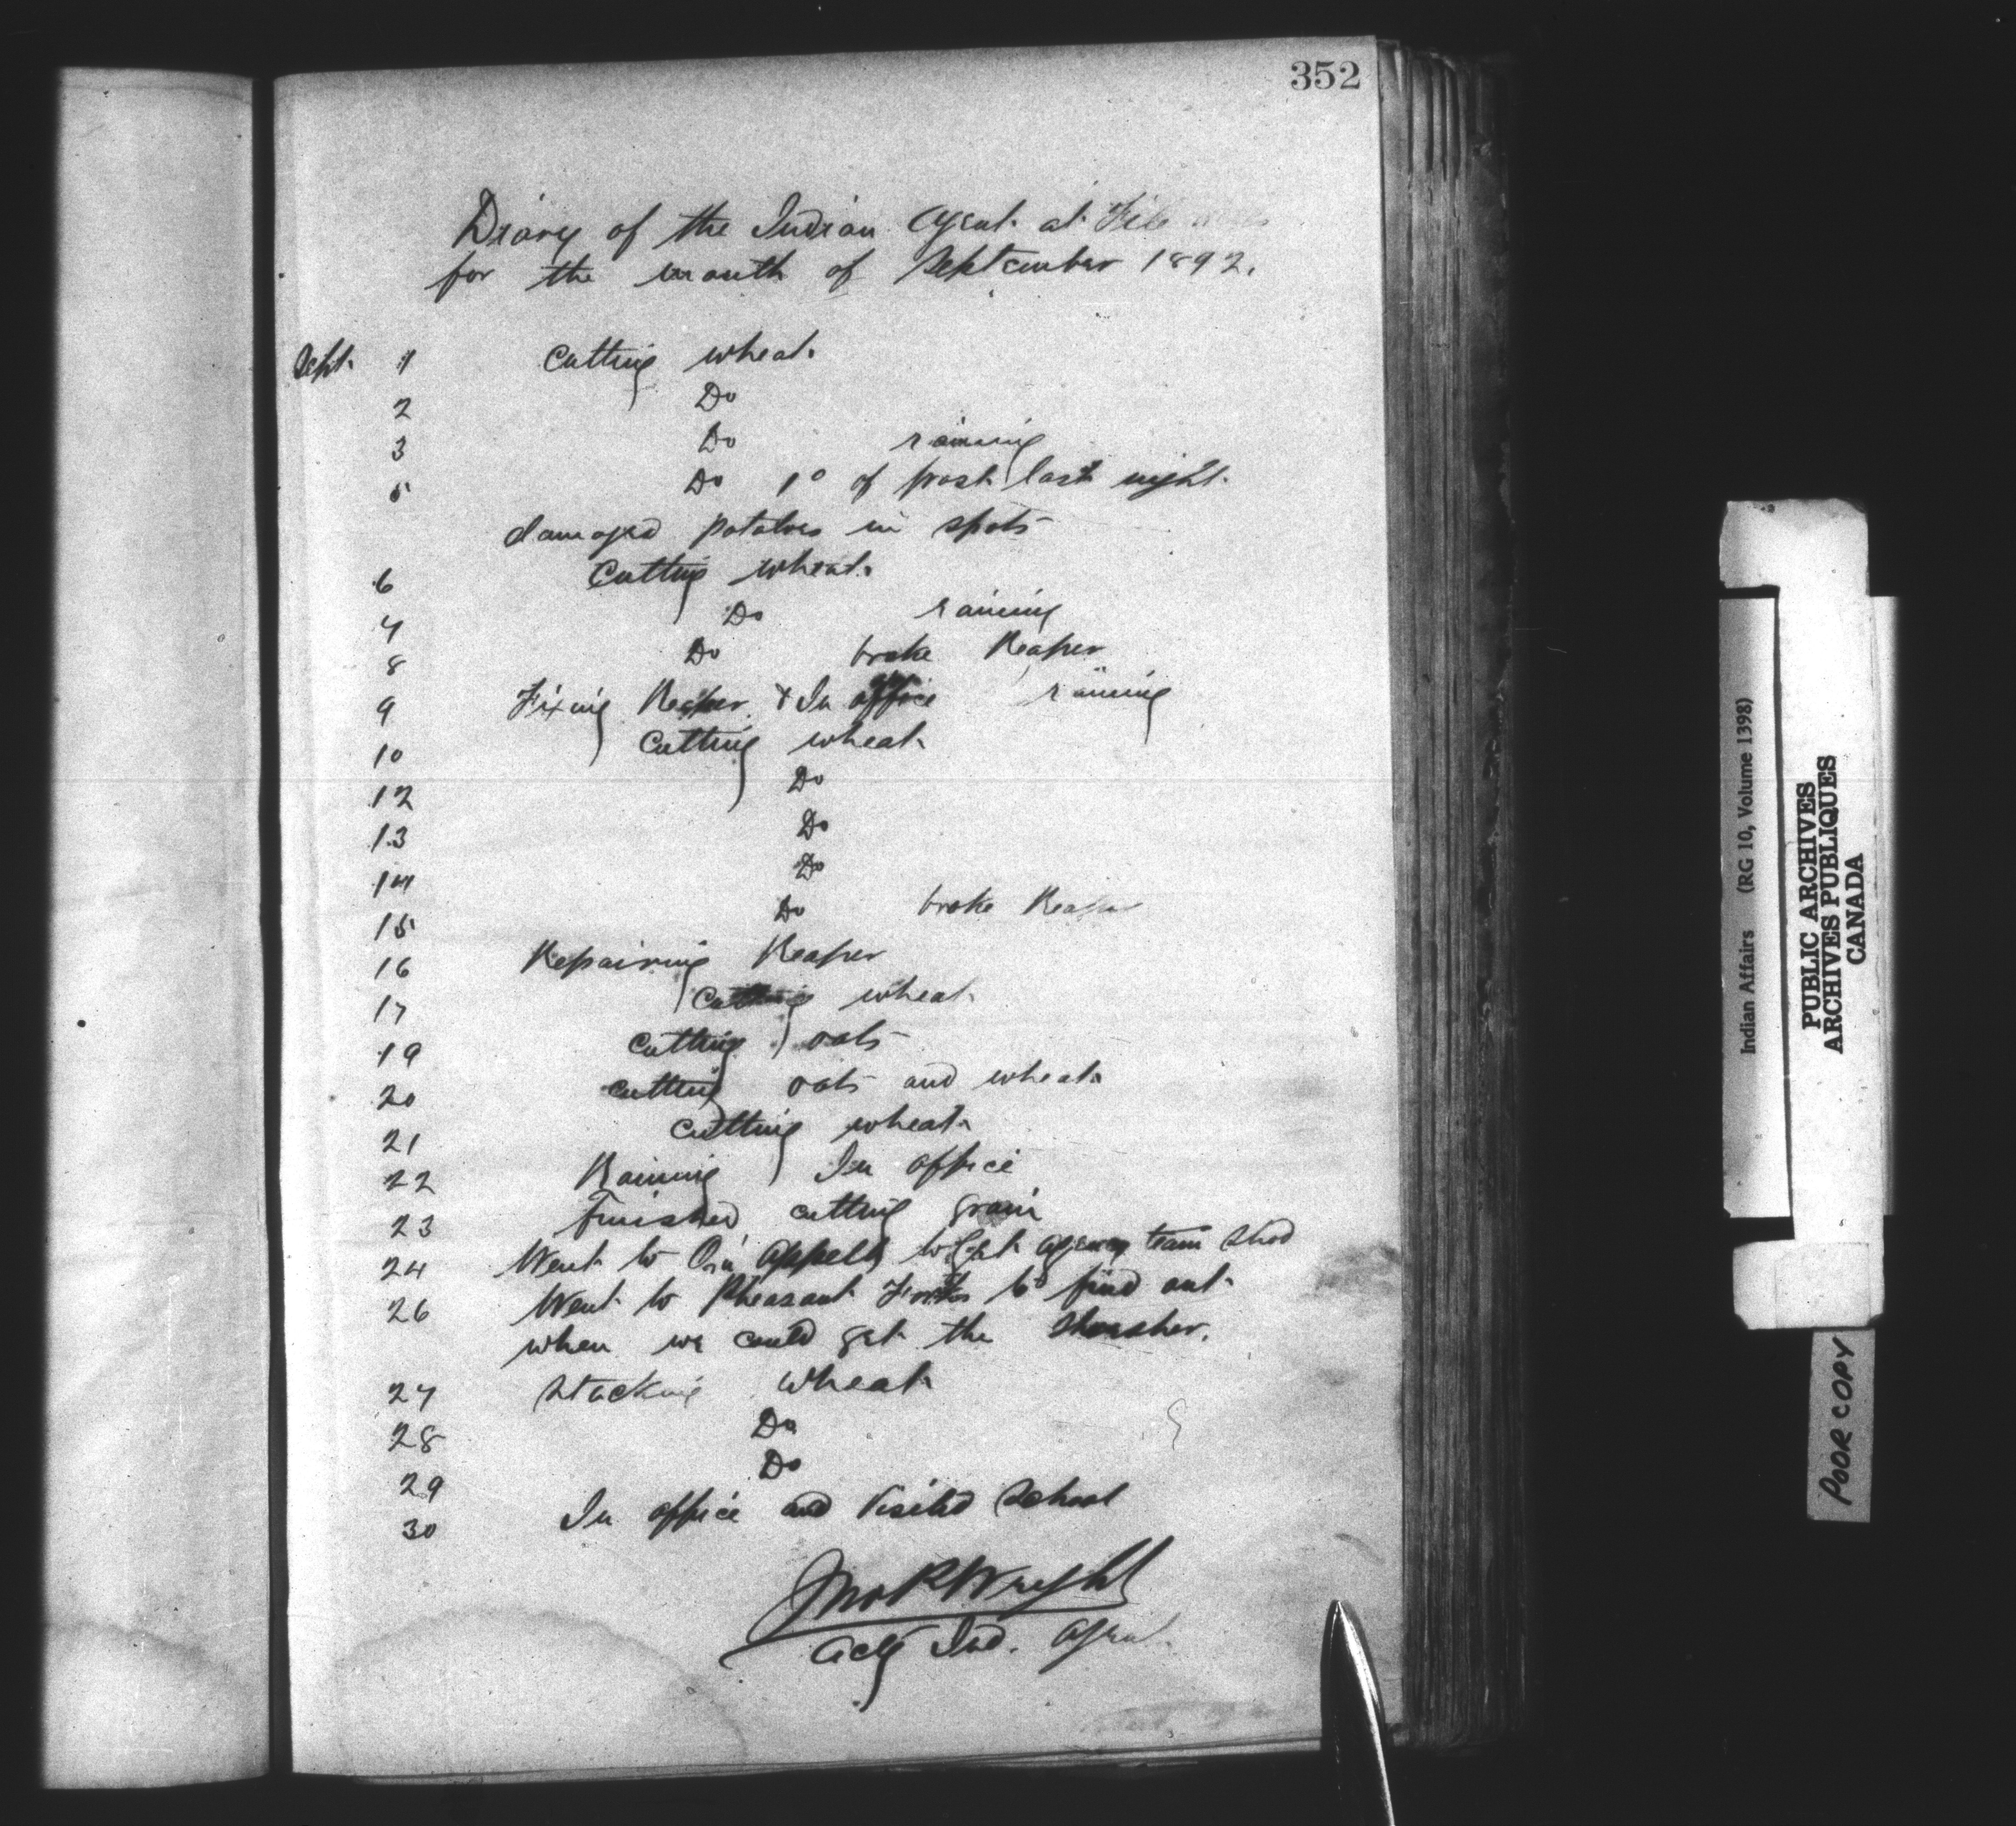 352
Diary of the Indian Agent at File
for the month of September 1892.
Sept. 1 Cutting wheat
2 Do
3 Do raining
5 Do 1° of frost last night
damaged potatoes in spots
6 Cutting wheat
7 Do raining
8 Do broke Reaper
9 Fixing Reaper & In office raining
10 Cutting wheat
12 Do
13 Do
14 Do
15 Do broke Reaper
16 Repairing Reaper
17 Cutting wheat
19 Cutting oats
20 Cutting oats and wheat
21 Cutting wheat
22 Raining In office
23 Finished cutting grain
24 Went to Qu'Appelle to get agency team shod
26 Went to Pheasant Forks to find out
when we could get the thrasher.
27 Stacking wheat
28 Do
29 Do
30 In office and visited School
Jno P Wright
Actg Ind. Agent
Indian Affairs (RG 10, Volume 1398)
PUBLIC ARCHIVES
ARCHIVES PUBLIQUES
CANADA
POOR COPY